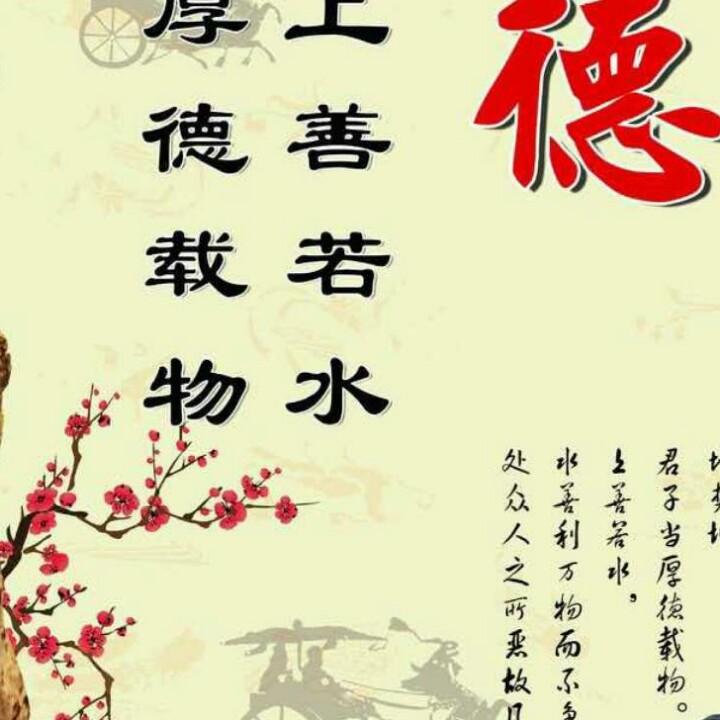 德
上善若水
厚德载物
君子当厚德载物。
上善若水，
水善利万物而不
处众人之所恶故